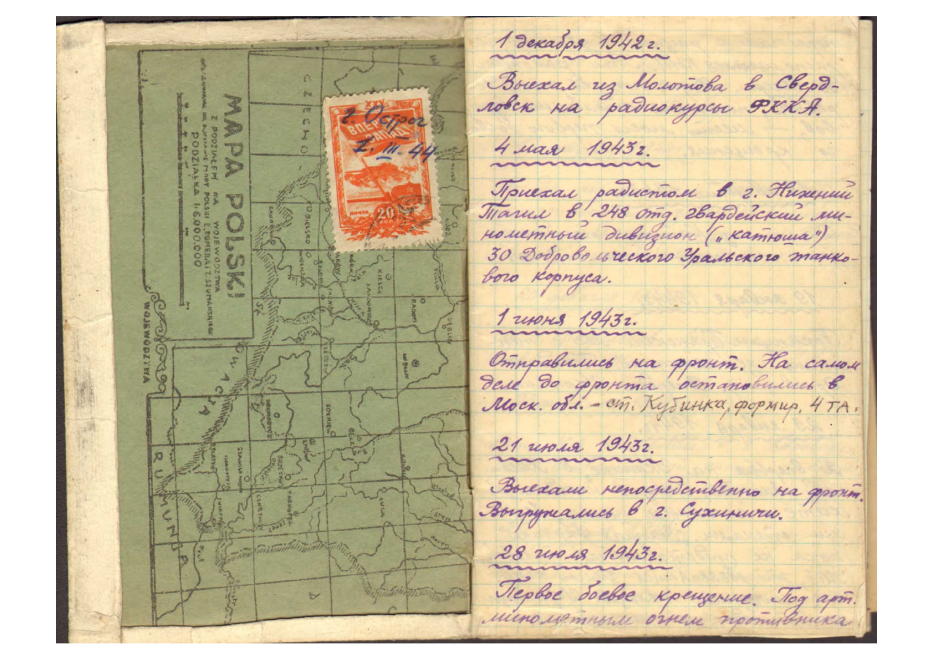 MAPA POLSKI
Z PODZIAŁEM NA WOJEWÓDZTWA
PODZIAŁKA 1:6.000.000
WOJEWÓDZTWA
CZECHO
RUMUNJA
ВПЕРЕД
НА ЗАПАД!
20
г. Острог
I. III. 44
1 декабря 1942 г.
Выехал из Молотова в Сверд-
ловск на радиокурсы РККА.
4 мая 1943 г.
Приехал радистом в г. Нижний
Тагил в 248 отд. гвардейский ми-
нометный дивизион („катюша")
30 Добровольческого Уральского танко-
вого корпуса.
1 июня 1943 г.
Отправились на фронт. На самом
деле до фронта остановились в
Моск. обл. - ст. Кубинка, формир. 4 ТА.
21 июля 1943 г.
Выехали непосредственно на фронт.
Выгружались в г. Сухиничи.
28 июля 1943 г.
Первое боевое крещение. Под арт.
минометным огнем противника